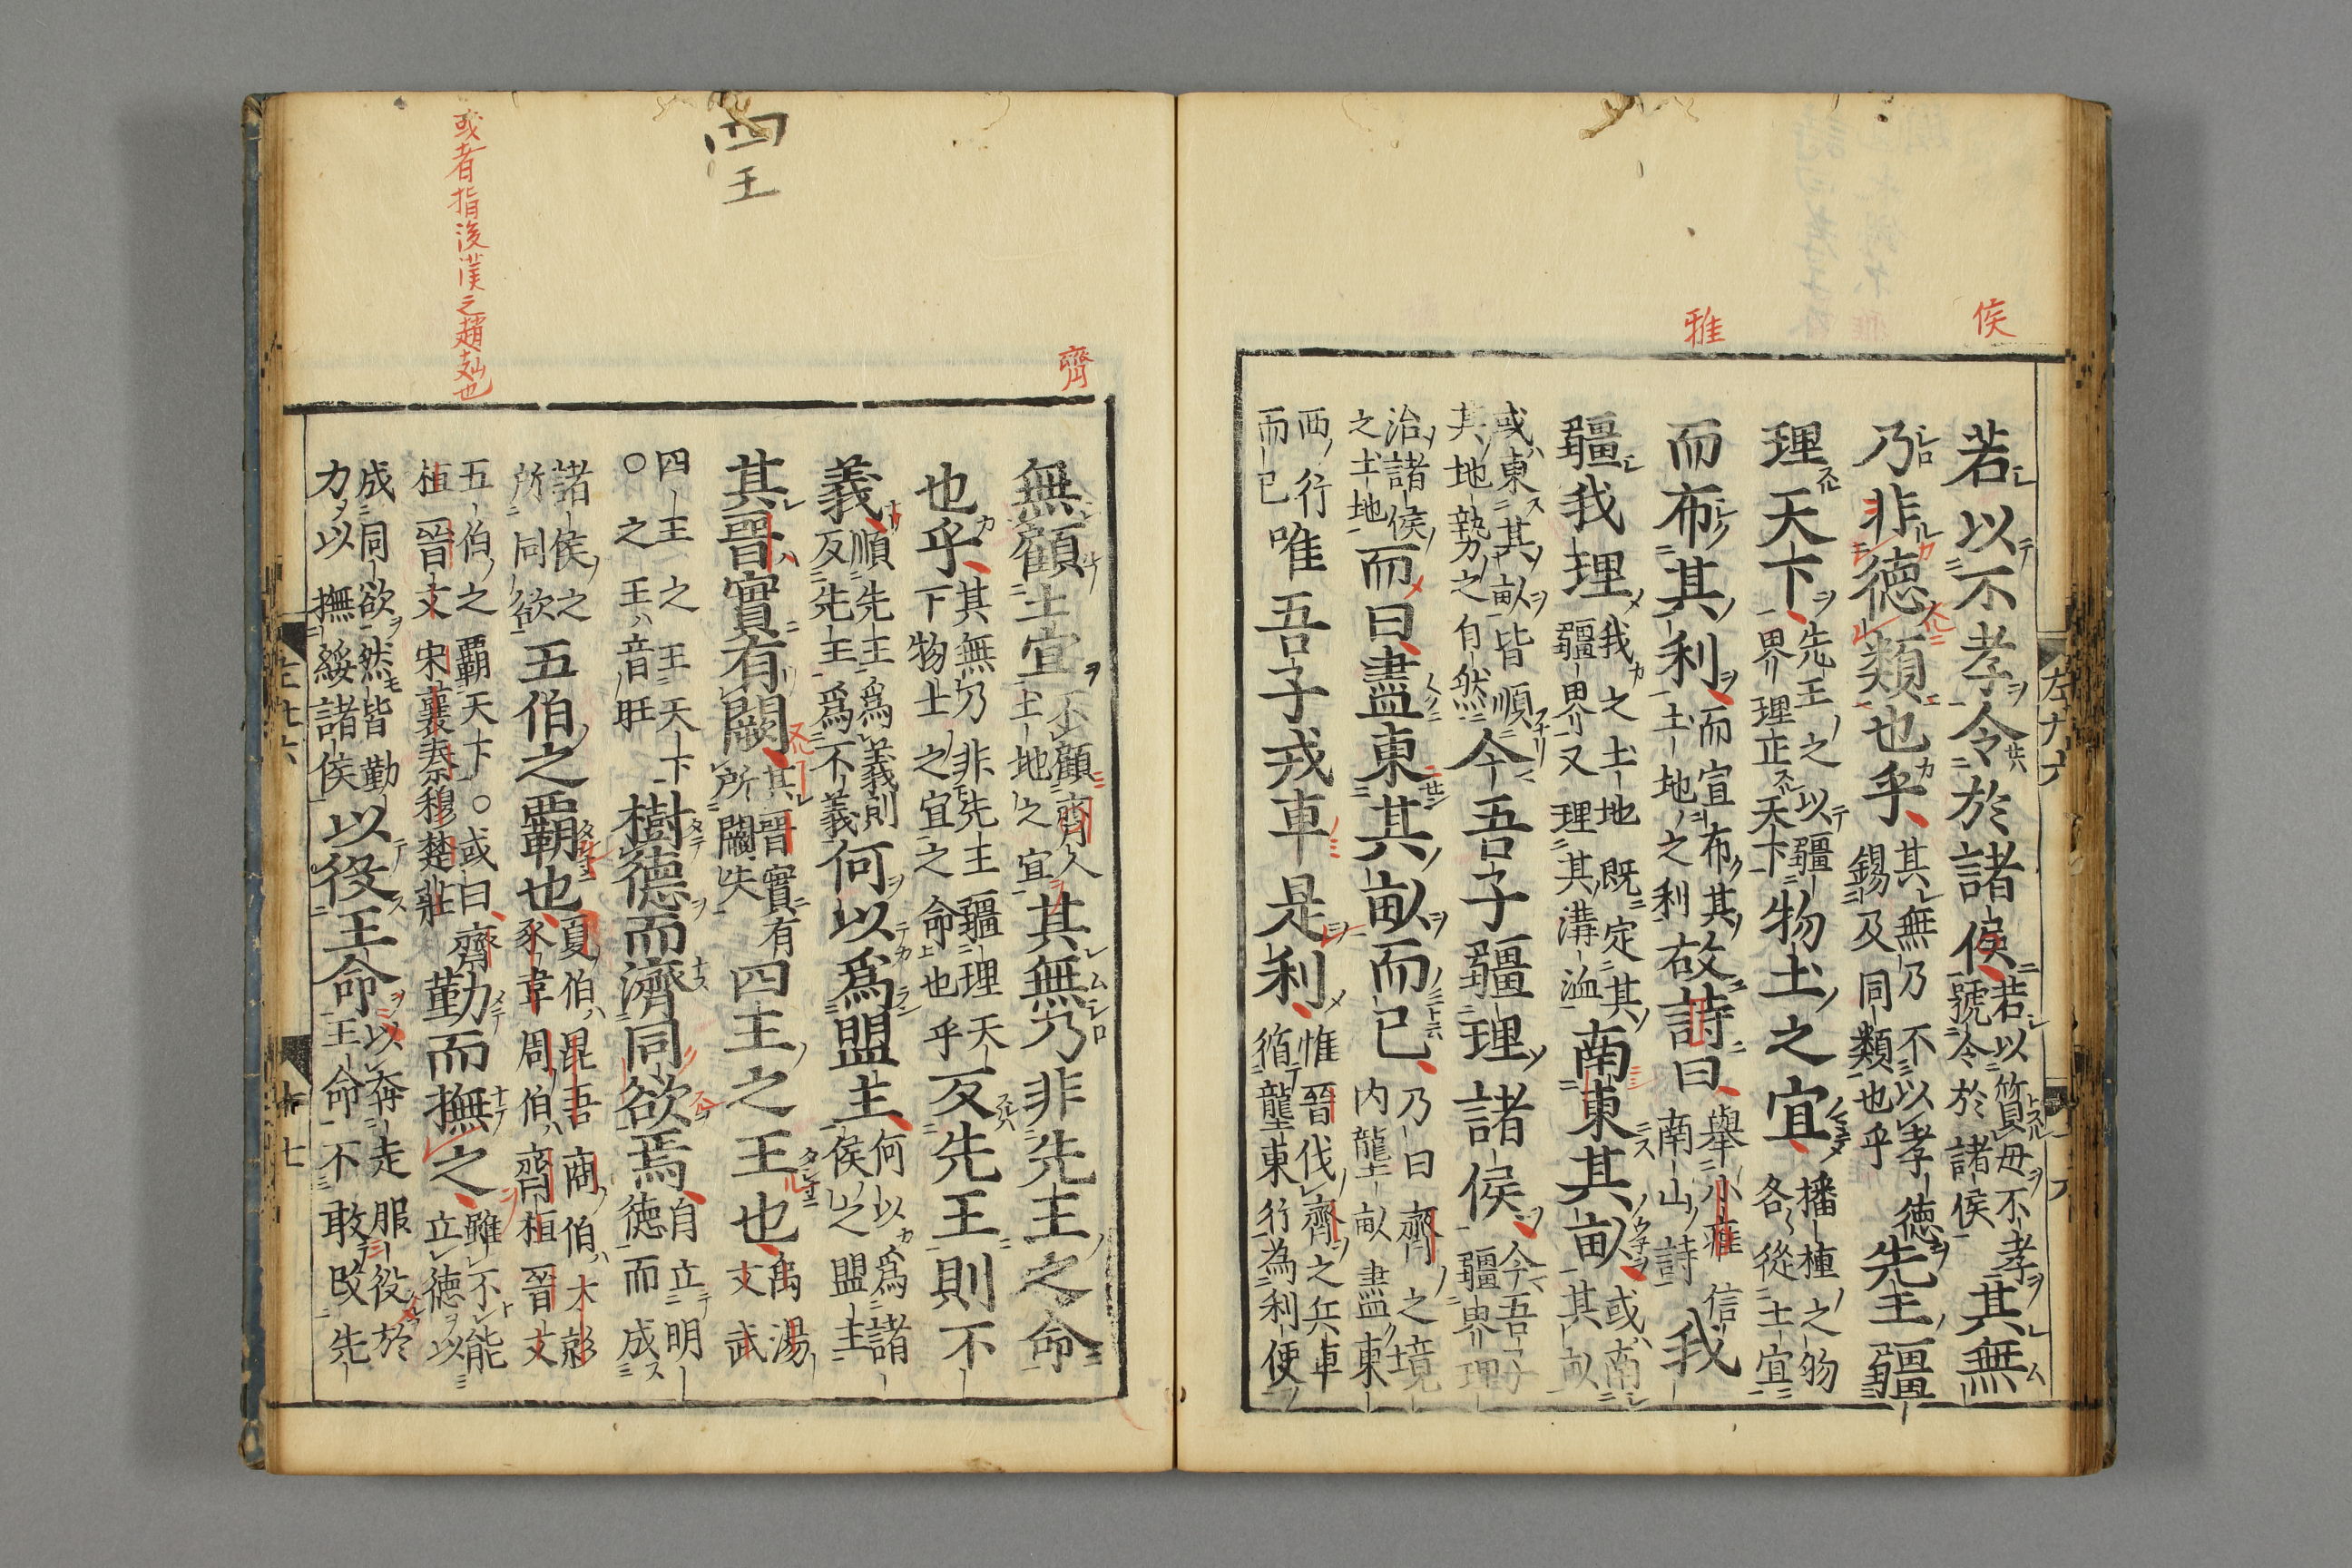 侯
雅
若以不孝令於諸侯若以質母不孝號令於諸侯其無
乃非徳類也乎其無乃不以孝徳錫及同類也乎先王疆
理天下先王之以疆界理正天下物土之宜播種之物各從土宜
而布其利而宣布其土地之利故詩曰舉小雅信南山詩我
疆我理我之土地既定疆界又理其溝洫南東其畝或南其畝
或東其畝皆順其地勢之自然今吾子疆理諸侯今吾子疆界理
治諸侯之土地而曰盡東其畝而已乃曰齊之境内壟畝盡東
西行而已唯吾子戎車是利惟晉伐齊之兵車循壟東行為利便
左十六
齊
四王
或者指後漢之趙
無顧土宜不顧齊人土地之宜其無乃非先王之命
也乎其無乃非先王疆理天下物土之宜之命也乎反先王則不
義順先王為義則反先王為不義何以為盟主何以為諸侯之盟主
其晉實有闕其晉實有所闕失四王之王也禹湯文武
四王之王天下○之王音旺樹徳而濟同欲焉自立明徳而成
諸侯之所同欲五伯之覇也夏伯昆吾商伯大彭豕韋周伯齊桓晉文
五伯之覇天下○或曰齊桓晉文宋襄秦穆楚莊勤而撫之雖不能立徳以
成同欲然皆勤力以撫綏諸侯以役王命以奔走服役於王命不敢改先
十七